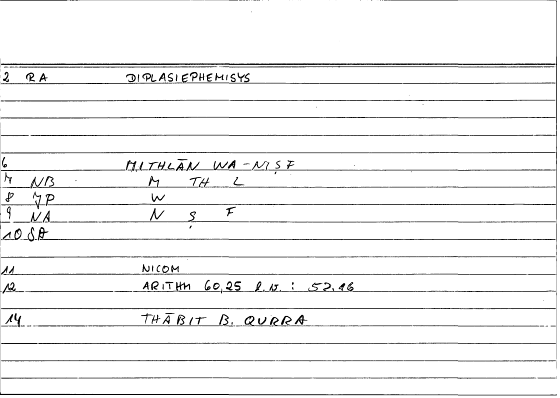 2 RA DIPLASIEPHEMISYS
6 MITHLĀN WA-NIṢF
7 NB M TH L
8 JP W
9 NA N Ṣ F
10 SA
11 NICOM
12 ARITHM 60,25 l.v. : 52.16
14 THĀBIT B. QURRA